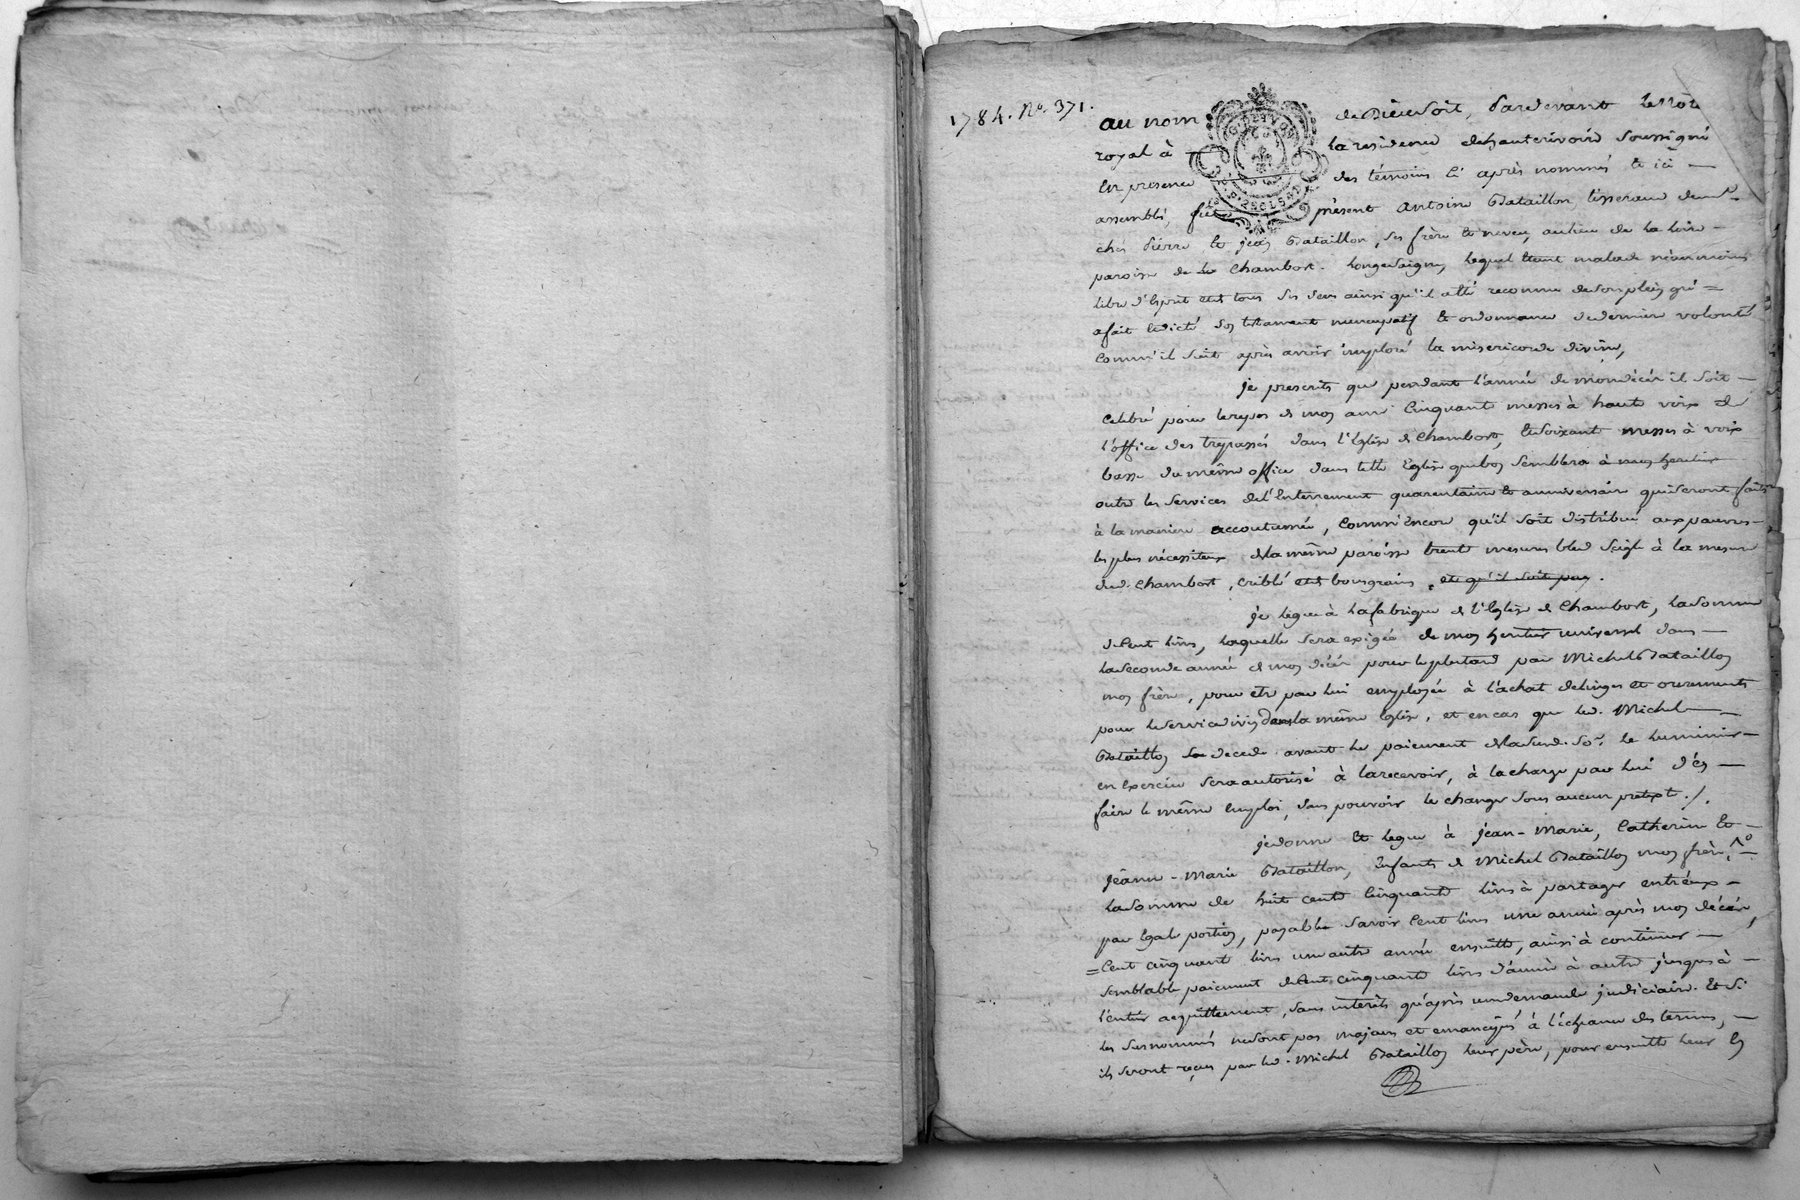 1784. No. 371.
au nom de Dieu soit, Pardevant le Nore
royal à la residence de hauterivoire soussigné
En presence des témoins ci après nommés et ici
assemblés, fut présent Antoine Bataillon tisserand demt.
chés Pierre et jean Bataillon, ses frère et neveu, au lieu de la loire
paroisse de Chambost Longessaigne, lequel étant malade néanmoins
libre d'Esprit et de tous ses sens ainsi qu'il a été reconnu de son plein gré =
a fait et dicté son testament nuncupatif et ordonnance de derniere volonté
comm'il suit après avoir imploré la misericorde divine,
je prescrits que pendant l'année de mon décés il soit
celebré pour le repos de mon ame Cinquante messes à haute voix de
l'office des trepassés dans l'Eglise de Chambost, et soixante messes à voix
basse du même office dans telle Eglise que bon semblera à mes heritiers
outre les services de l'Enterrement quarantaine et anniversaire qui seront faits
à la maniere accoutumée, comm'encore qu'il soit distribué aux pauvres
les plus nécessiteux de la même paroisse trente mesures bled seigle à la mesure
dud. Chambost, criblé et de bons grains, et qu'il soit pay.
je legue à la fabrique de l'Eglise de Chambost, la somme
de Cent livres, laquelle sera exigée de mon heritier universel dans
la seconde année de mon décés pour le plutard par Michel Bataillon
mon frère, pour etre par lui employée à l'achat de linges et ornements
pour le service divin dans la même Eglise, et en cas que led. Michel
Bataillon decede avant le paiement de lasusd. so. le luminier
en Exercice sera autorisé à la recevoir, à la charge par lui d'en
faire le même emploi, sans pouvoir le changer sous aucun pretexte ./.
je donne et legue à jean-Marie, Catherine et
jeanne-Marie Bataillon, Enfants de Michel Bataillon mon frère,
la somme de huit cents Cinquante livres à partager entr'eux
par egale portion, payable savoir Cent livres une année après mon décés,
= Cent cinquante livres une autre année ensuitte, ainsi à continuer
semblable paiement de Cent cinquante livres d'année à autre jusques à
l'entier acquittement, sans intérêts qu'après une demande judiciaire. Et si
les susnommés ne sont pas majeurs et emancipés à l'échéance des termes,
ils seront reçus par led. Michel Bataillon leur père, pour ensuitte leur en